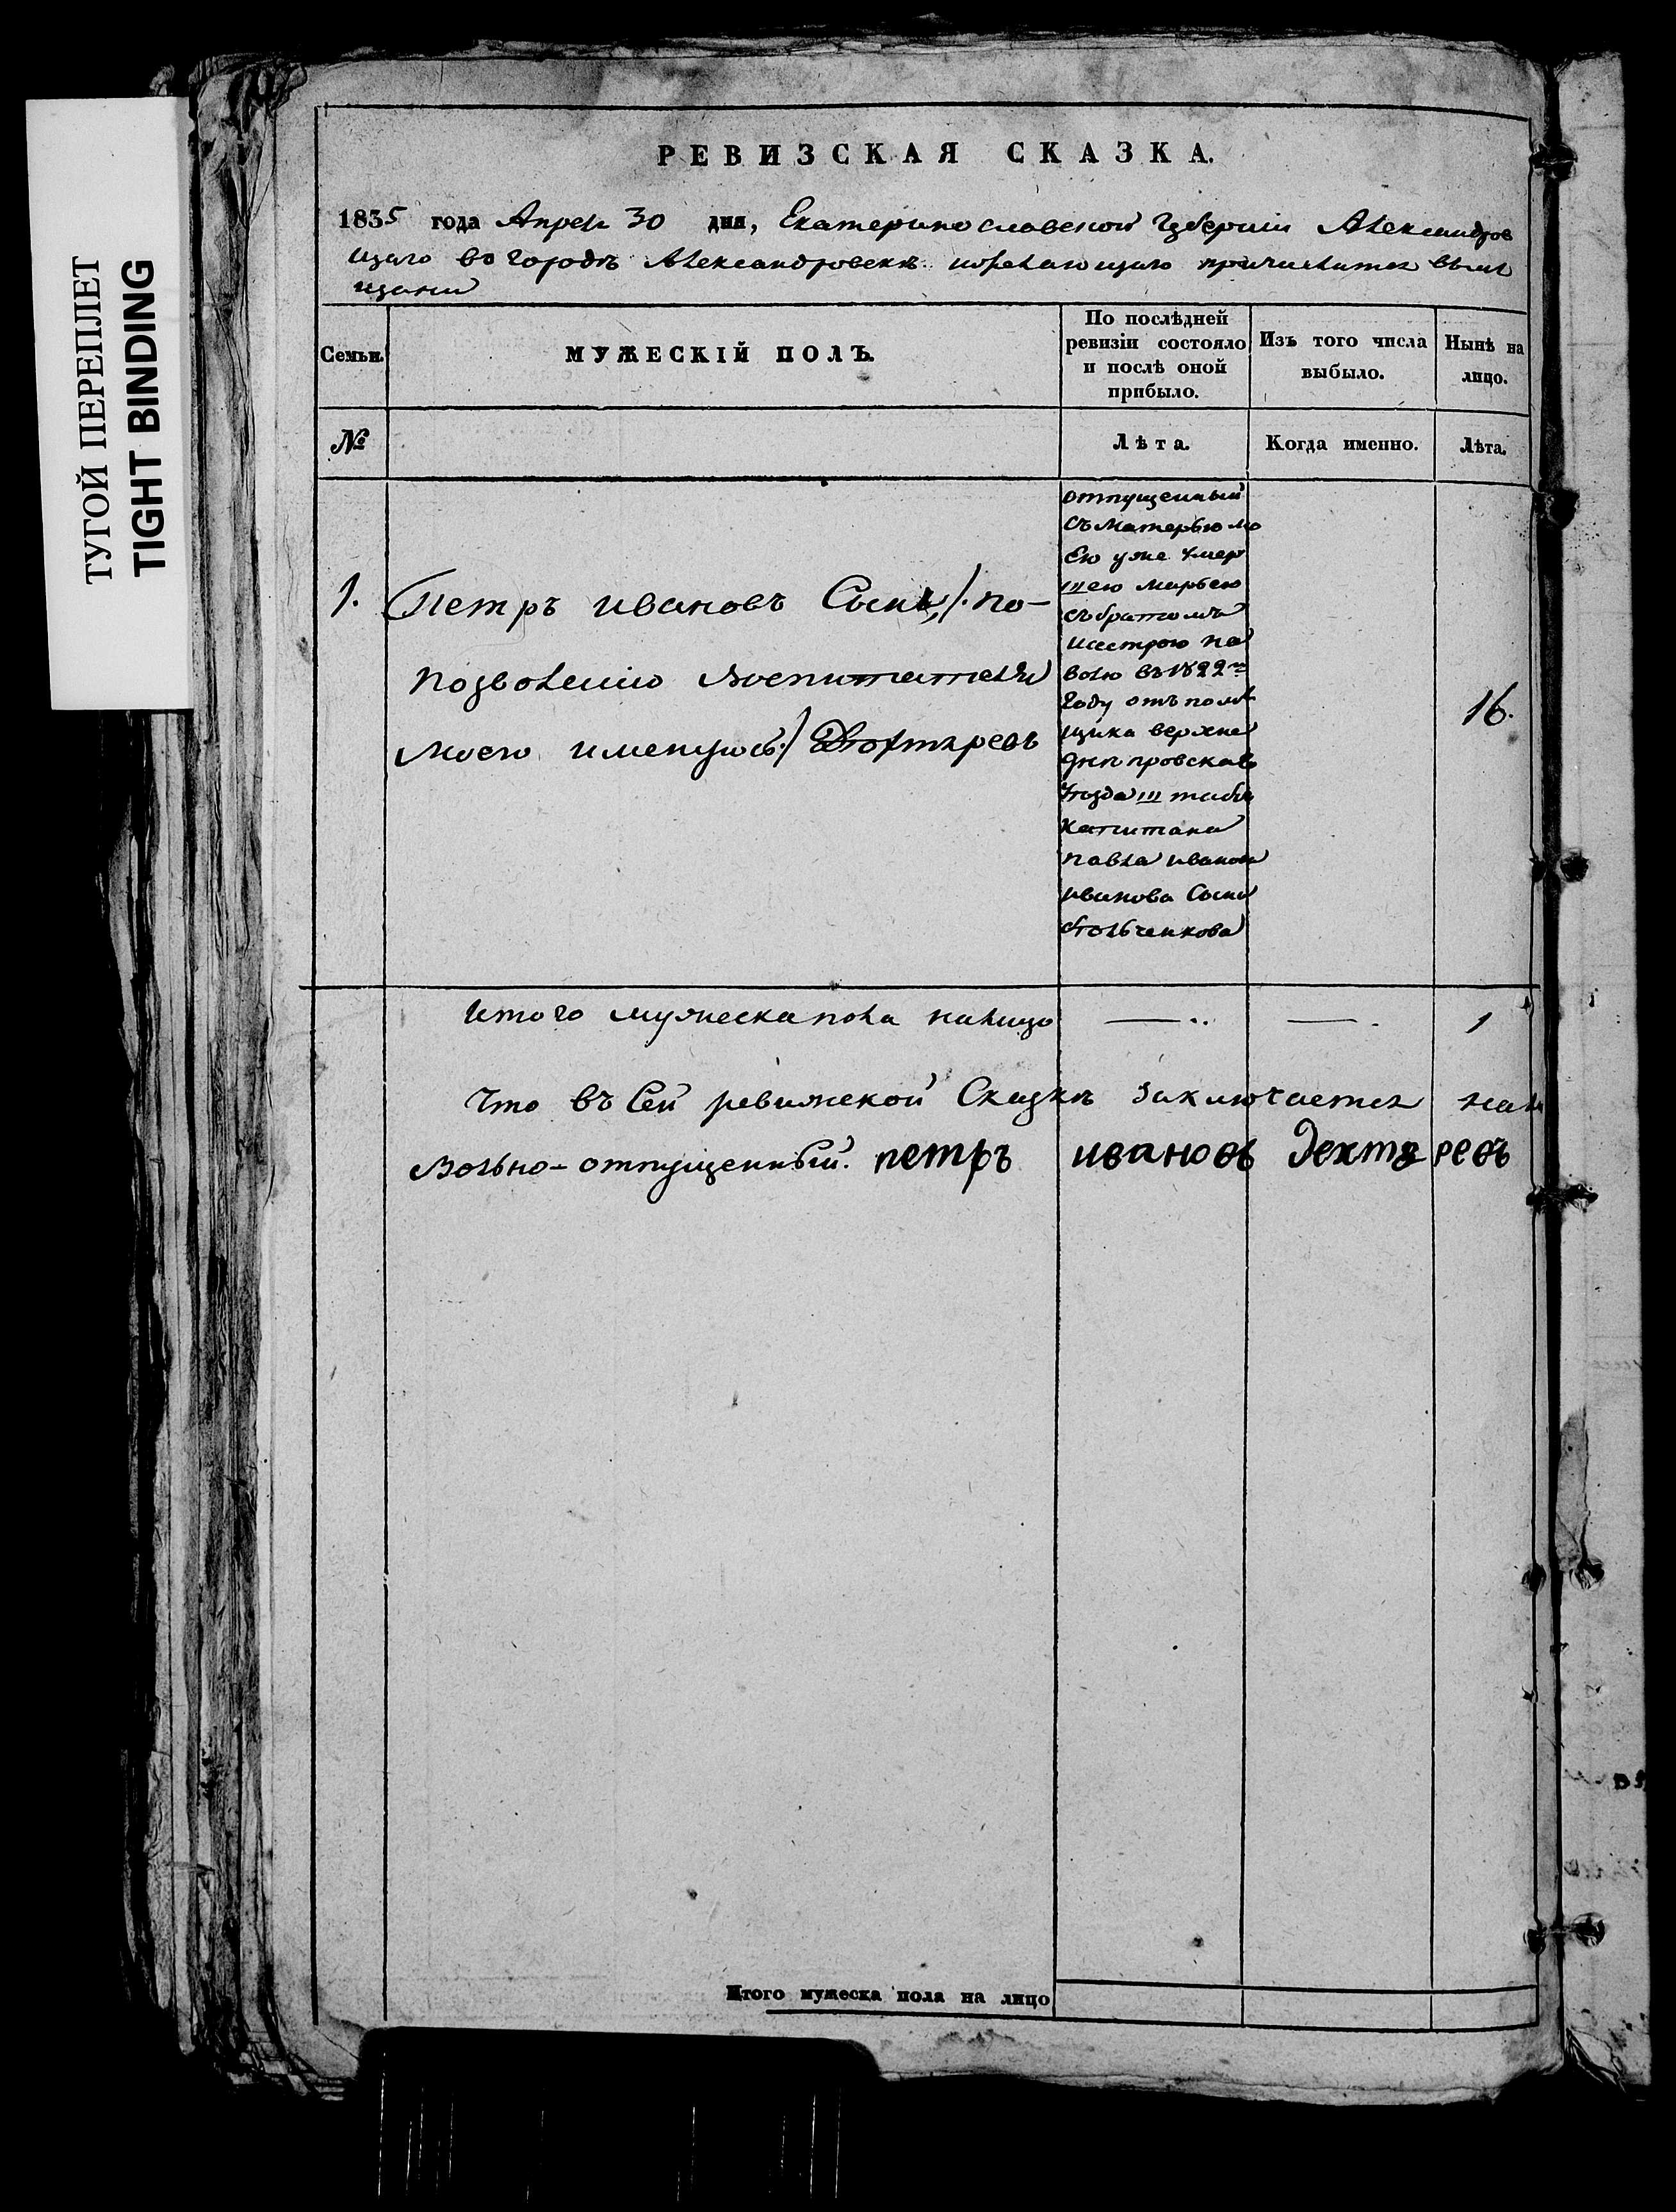 ТУГОЙ ПЕРЕПЛЕТ
TIGHT BINDING
РЕВИЗСКАЯ СКАЗКА.
1835 года Апреля 30 дня, Екатеринославской Губернии Александров
щаго въ городѣ Александровскѣ желающаго причислится въ ме
щани
Семьи.
МУЖЕСКІЙ ПОЛЪ.
По послѣдней
ревизіи состояло
и послѣ оной
прибыло.
Изъ того числа
выбыло.
Нынѣ на
лицо.
№
Лѣта.
Когда именно.
Лѣта.
1.
Петръ Ивановъ Сынъ /. по-
позволенію воспитателя
моего именуюсь ./ Дехтяревъ
отпущенный
съ матерью мо
ею уже умер
шею Марьею
съ братомъ
и сестрою на
волю въ 1822м
Году отъ помѣ
щика верхне
днепровскаго
уезда штабсъ
капитана
Павла Иванова
Иванова Сына
16.
Итого мужеска пола налицо
1
Что въ Сей ревижской Сказкѣ заключается
Вольно-отпущенный. петръ ивановъ дехтяревъ
Итого мужеска пола на лицо